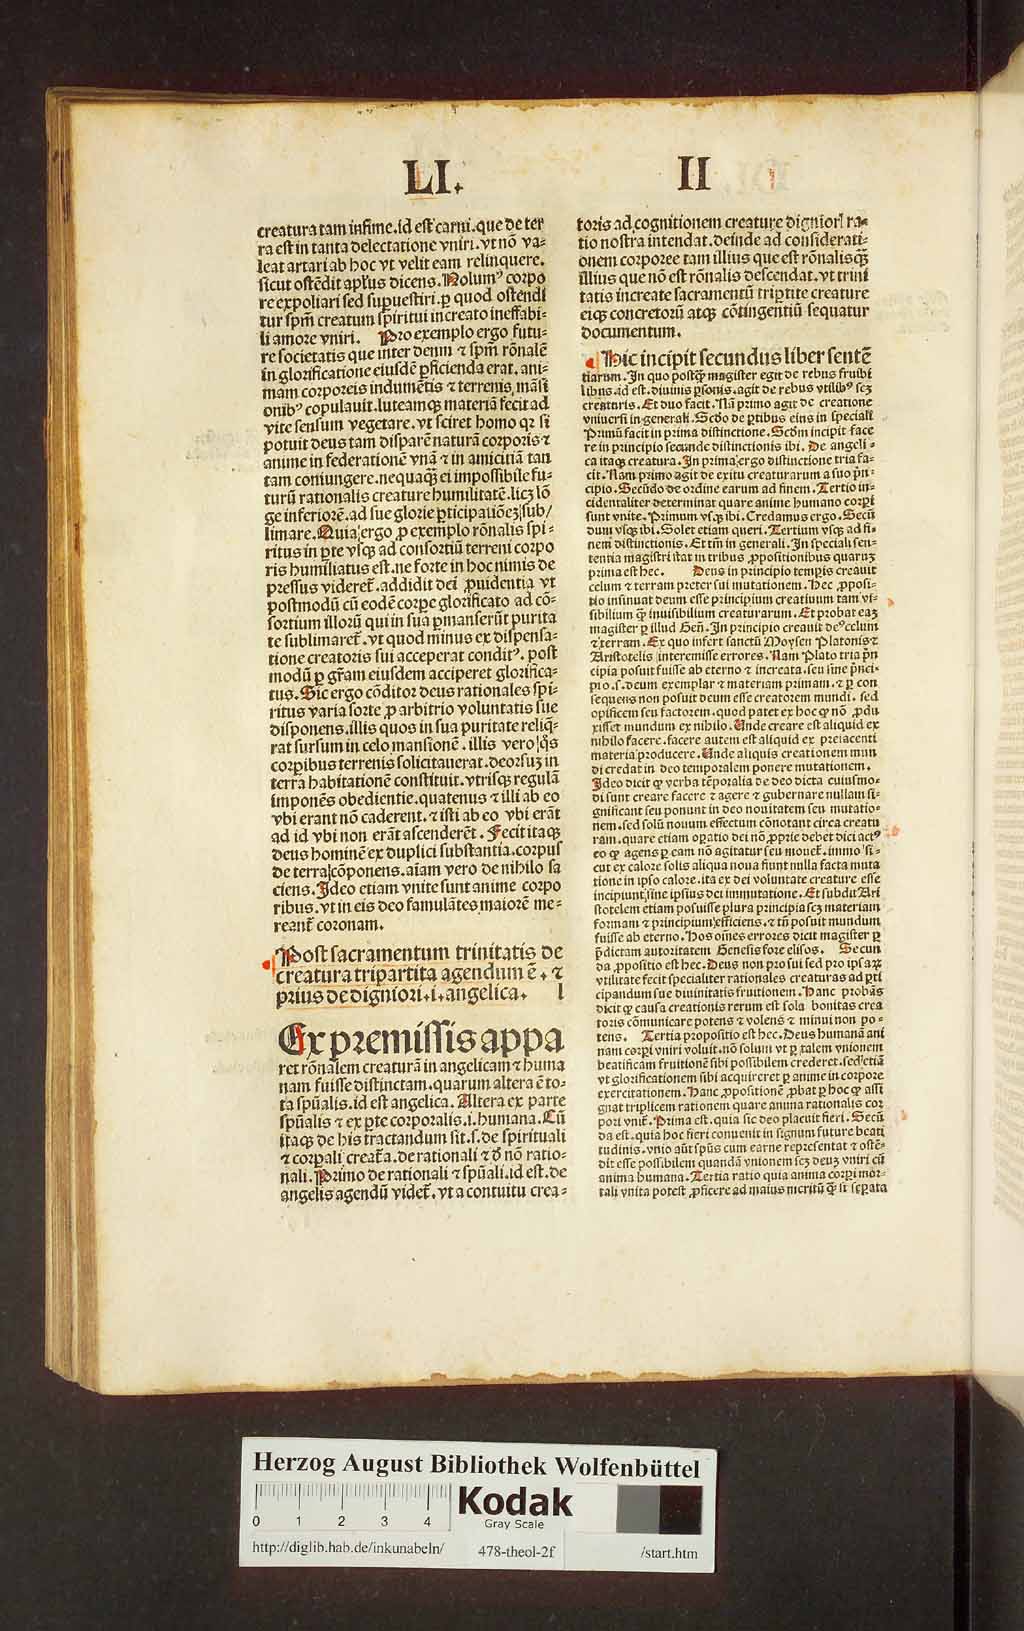 LI.
II
creatura tam infime.id est carni.que de ter
ra est in tanta delectatione vniri.vt nõ va⸗
leat artari ab hoc vt velit eam relinquere.
sicut ostẽdit apl'us dicens.Nolumꝰ corpo
re expoliari sed supuestiri.ꝑ quod ostendi
tur spm̃ creatum spiritui increato ineffabi⸗
li amore vniri. Pro exemplo ergo futu⸗
re societatis que inter deum ⁊ spm̃ rõnalẽ
in glorificatione eiusdẽ ꝑficienda erat.ani⸗
mam corporeis indumẽtis ⁊ terrenis mãsi
onibꝰ copulauit.luteamqꝫ materiã fecit ad
vite sensum vegetare.vt sciret homo qꝛ si
potuit deus tam disparẽ naturã corporis ⁊
anime in federationẽ vnã ⁊ in amicitiã tan
tam coniungere.nequaqꝫ̃ ei impossibile fu⸗
turũ rationalis creature humilitatẽ.licꝫ lõ
ge inferiorẽ.ad sue glorie ꝑticipationẽ sub/
limare.Quia ergo ꝓ exemplo rõnalis spi⸗
ritus in ꝑte vsqꝫ ad consortiũ terreni corpo
ris humiliatus est.ne forte in hoc nimis de
pressus videret̃.addidit dei ꝓuidentia vt
postmodũ cũ eodẽ corpe glorificato ad cõ⸗
sortium illorũ qui in sua ꝑmanserũt purita
te sublimaret̃.vt quod minus ex dispensa⸗
tione creatoris sui acceperat conditꝰ.post
modũ ꝑ gr̃am eiusdem acciperet glorifica⸗
tus.Sic ergo cõditor deus rationales spi⸗
ritus varia sorte ꝓ arbitrio voluntatis sue
disponens.illis quos in sua puritate reliq̃⸗
rat sursum in celo mansionẽ.illis vero q̃s
corꝑibus terrenis solicitauerat.deorsuꝫ in
terra habitationẽ constituit.vtrisqꝫ regulã
imponẽs obedientie.quatenus ⁊ illi ab eo
vbi erant nõ caderent.⁊ isti ab eo vbi erãt
ad id vbi non erãt ascenderẽt. Fecit itaqꝫ
deus hominẽ ex duplici substantia.corpus
de terra cõponens.aĩam vero de nihilo fa
ciens.Ideo etiam vnite sunt anime corpo
ribus.vt in eis deo famulãtes maiorẽ me⸗
rerent̃ coronam.
Post sacramentum trinitatis de
creatura tripartita agendum ẽ.⁊
prius de digniori.i.angelica. I
Ex premissis appa
ret rõnalem creaturã in angelicam ⁊ huma
nam fuisse distinctam.quarum altera ẽ to⸗
ta sp̃ualis.id est angelica.Altera ex parte
sp̃ualis ⁊ ex ꝑte corporalis.i.humana.Cũ
itaqꝫ de his tractandum sit.s.de spirituali
⁊ corꝑali creat̃a.de rationali ⁊ d̃ nõ ratio⸗
nali.Primo de rationali ⁊ sp̃uali.id est.de
angelis agendũ videt̃.vt a contuitu crea⸗
toris ad cognitionem creature digniorl ra⸗
tio nostra intendat.deinde ad considerati⸗
onem corporee tam illius que est rõnalis qꝫ̃
illius que nõ est rõnalis descendat.vt trini
tatis increate sacramentũ tripertite creature
eiqꝫ concretorũ atqꝫ cõtingentiũ sequatur
documentum.
Hic incipit secundus liber sentẽ
tiarum.In quo postq̃ magister egit de rebus fruibi
libus.id est.diuinis ꝑsonis.agit de rebus vtilibꝰ scꝫ
creaturis.Et duo facit.Nã primo agit de creatione
vniuersi in generali.Scd̃o de ꝑtibus eius in speciali
Primũ facit in prima distinctione.Scdm̃ incipit face
re in principio secunde distinctionis ibi.De angeli⸗
ca itaqꝫ creatura.In prima ergo distinctione tria fa⸗
cit.Nam primo agit de exitu creaturarum a suo p̃n⸗
cipio.Secũdo de ordine earum ad finem.Tertio in⸗
cidentaliter determinat quare anime humano corꝑi
sunt vnite.Primum vsqꝫ ibi.Credamus ergo.Secũ
dum vsqꝫ ibi.Solet etiam queri.Tertium vsqꝫ ad fi⸗
nem distinctionis.Et tm̃ in generali.In speciali sen⸗
tentia magistri stat in tribus ꝓpositionibus quaruꝫ
prima est hec. Deus in principio temꝑis creauit
celum ⁊ terram preter sui mutationem.Hec ꝓposi⸗
tio insinuat deum esse principium creatiuum tam vi⸗
sibilium q̃ inuisibilium creaturarum.Et probat eaꝫ
magister ꝑ illud Geñ.In principio creauit deꝰ celum
⁊ terram.Ex quo infert sanctũ Moysen Platonis ⁊
Aristotelis interemisse errores.Nam Plato tria p̃n
cipia posuit fuisse ab eterno ⁊ increata.seu sine p̃nci⸗
pio.s.deum exemplar ⁊ materiam primam.⁊ ꝑ con
sequens non posuit deum esse creatorem mundi.sed
opificem seu factorem.quod patet ex hoc ꝙ nõ ꝓdu
xisset mundum ex nihilo.Unde creare est aliquid ex
nihilo facere.facere autem est aliquid ex preiacenti
materia producere.Unde aliquis creationem mun
di credat in deo temporalem ponere mutationem.
Ideo dicit ꝙ verba tẽporalia de deo dicta cuiusmo⸗
di sunt creare facere ⁊ agere ⁊ gubernare nullam si⸗
gnificant seu ponunt in deo nouitatem seu mutatio⸗
nem.sed solũ nouum effectum cõnotant circa creatu
ram.quare etiam oꝑatio dei nõ ꝓprie debet dici actꝰ
eo ꝙ agens ꝑ eam nõ agitatur seu mouet̃.immo si⸗
cut ex calore solis aliqua noua fiunt nulla facta muta
tione in ipso calore.ita ex dei voluntate creature esse
incipiunt sine ipsius dei immutatione.Et subdit Ari
stotelem etiam posuisse plura principia scꝫ materiam
formam ⁊ principium efficiens.⁊ tñ posuit mundum
fuisse ab eterno.Hos oẽs errores dicit magister ꝑ
p̃dictam autoritatem Genesis fore elisos. Secun
da ꝓpositio est hec.Deus non pro sui sed pro ipsaꝝ
vtilitate fecit specialiter rationales creaturas ad ꝑti
cipandum sue diuinitatis fruitionem.Hanc probãs
dicit ꝙ causa creationis rerum est sola bonitas crea
toris cõmunicare potens ⁊ volens ⁊ minui non po⸗
tens. Tertia propositio est hec.Deus humanã ani
mam corꝑi vniri voluit.nõ solum vt ꝑ talem vnionem
beatificam fruitionẽ sibi possibilem crederet.sed etiã
vt glorificationem sibi acquireret ꝑ anime in corpore
exercitationem.Hanc ꝓpositionẽ ꝓbat ꝑ hoc ꝙ assi
gnat triplicem rationem quare anima rationalis cor
pori vnit̃.Prima est.quia sic deo placuit fieri.Secũ
da est.quia hoc fieri conuenit in signum future beati
tudinis.vnio aũt spũs cum carne representat ⁊ ostẽ⸗
dit esse possibilem quandã vnionem scꝫ deuꝫ vniri cũ
anima humana.Tertia ratio quia anima corꝑi mor⸗
tali vnita potest ꝓficere ad maius meritũ q̃ si seꝑata
Herzog August Bibliothek Wolfenbüttel
0 1 2 3 4
Kodak
Gray Scale
http://diglib.hab.de/inkunabeln/ 478-theol-2f /start.htm